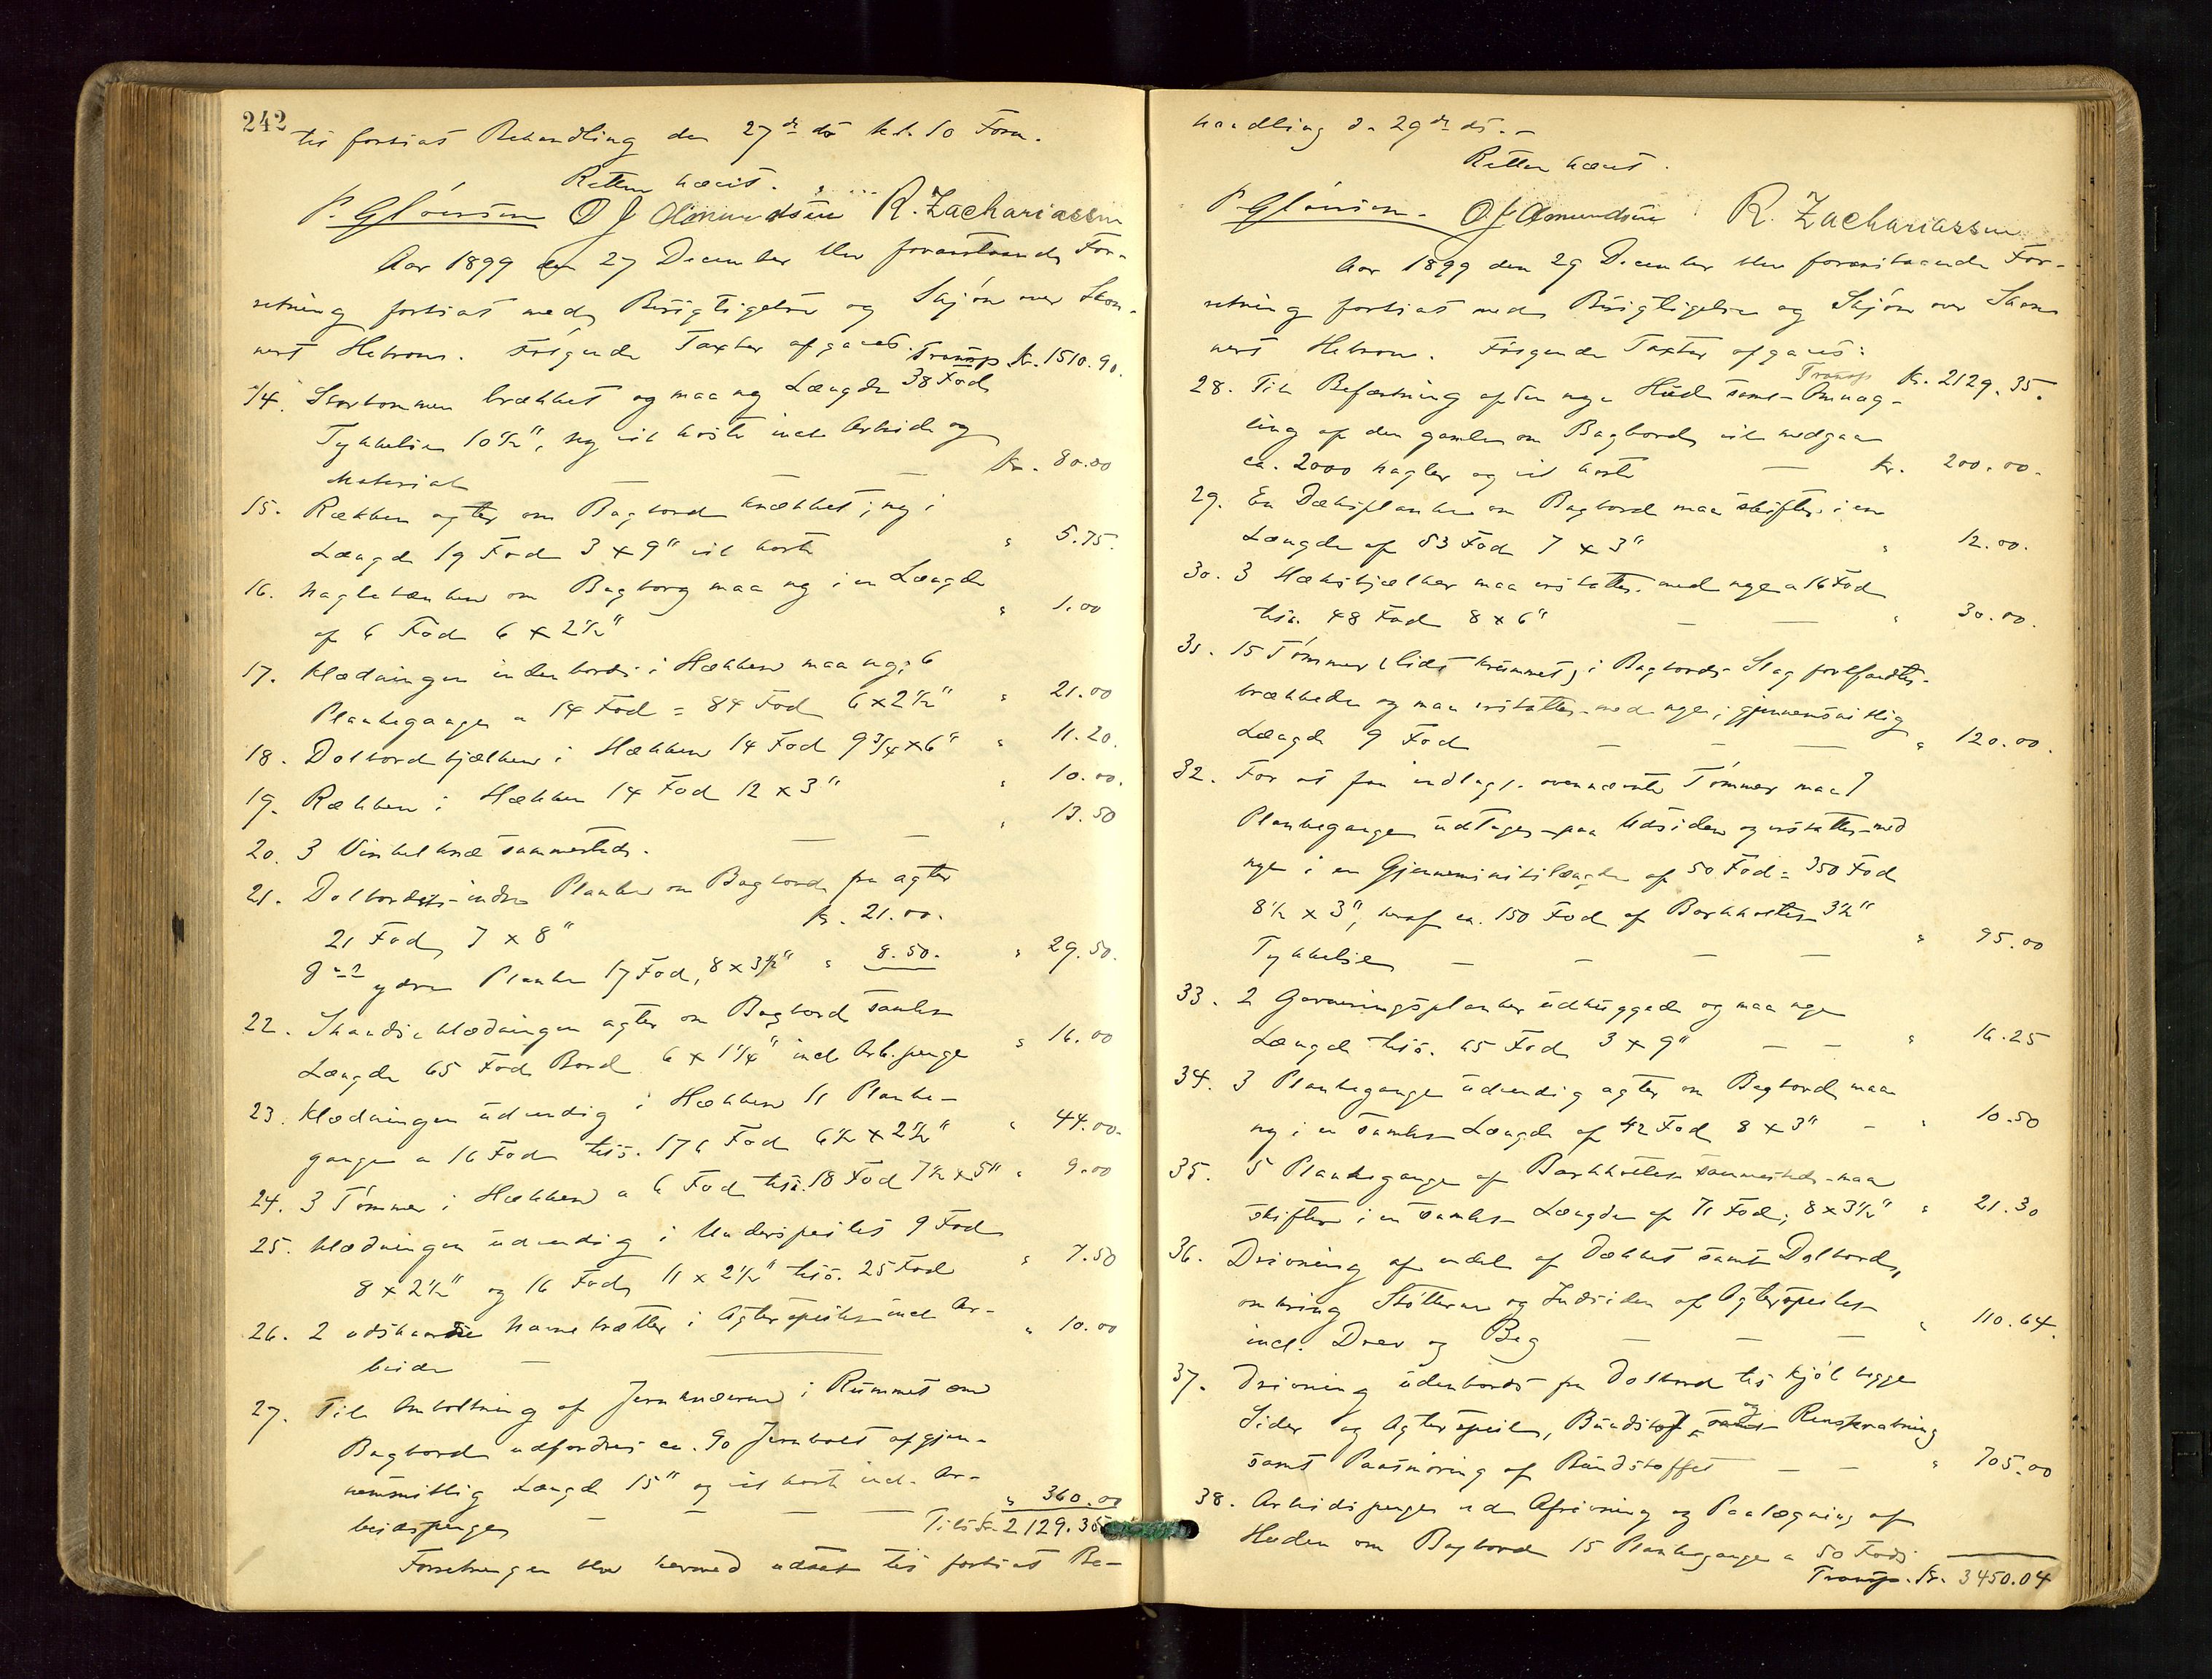 242
til fortsat Behandling den 27de ds kl. 10 Form.
Retten hævet.
O J Amundsen R. Zachariassen
Aar 1899 den 27 December blev foranstaaende For-
retning fortsat med Besigtigelse og Skjøn over Skon-
nert Hebron. Følgende Taxter afgaves. Transp Kr. 1510.90.
14. Storbommen brækket og maa ny Længde 38 Fod
Tykkelse 10½", ny vil koste incl Arbeide og
Materiale — — Kr. 80.00
15. Rækken agter om Bagbord knækket; ny i
Længde 19 Fod 3 x 9" vil koste " 5.75.
16. Naglebænken om Bagbord maa ny i en Længde
af 6 Fod 6 x 2½" " 1.00
17. Klædningen indenbords i Hækken maa ny; 6
Plankegange a 14 Fod = 84 Fod 6 x 2½" " 21.00
18. Dolbordbjælken i Hækken 14 Fod 9¾ x 6" " 11.20.
19. Rækken i Hækken 14 Fod 12 x 3" " 10.00.
20. 3 Vinkelknæ sammesteds. — — " 13.50
21. Dolbordets indre Planke om Bagbord fra agter
21 Fod 7 x 8" Kr. 21.00.
do ydre Planke 17 Fod, 8 x 3½" " 8.50. " 29.50.
22. Skandseklædningen agter om Bagbord samlet
Længde 65 Fod Bord 6 x 1¼" incl Arb.penge " 16.00
23. Klædningen udvendig i Hækken 11 Planke-
gange a 16 Fod tils. 176 Fod 6½ x 2½" " 44.00.
24. 3 Tømmer i Hækken a 6 Fod tils. 18 Fod 7½ x 5" " 9.00
25. Klædningen udvendig i Underspeilet 9 Fod
8 x 2½" og 16 Fod 11 x 2½" tils. 25 Fod " 7.50
26. 2 udskaarne Navnebrætter i Agterspeilet incl Ar-
beide — " 10.00
27. Til Omboltning af Jernknæerne i Rummet om
Bagbord udfordres ca. 90 Jernbolt af gjen-
nemsnitlig Længde 15" og vil koste incl. Ar-
beidspenge — — — — " 360.00
Tils Kr 2129.35
Forretningen blev hermed udsat til fortsat Be-
handling den 29de ds. —
Retten hævet.
O J Amundsen R. Zachariassen
Aar 1899 den 29 December blev foranstaaende For-
retning fortsat med Besigtigelse og Skjøn over Skon-
nert Hebron. Følgende Taxter afgaves:
Transp Kr. 2129.35.
28. Til Befæstning af den nye Hud samt Omnag-
ling af den gamle om Bagbord vil medgaa
ca. 2000 Nagler og vil koste — Kr. 200.00.
29. En Dæksplanke om Bagbord maa skiftes i en
Længde af 53 Fod 7 x 3" " 12.00.
30. 3 Hæksbjælker maa erstattes med nye a 16 Fod
tils. 48 Fod 8 x 6" — — " 30.00.
31. 15 Tømmer (lidt krummet) i Bagbords Slag forefandtes
brækkede og maa erstattes med nye; gjennemsnitlig
Længde 9 Fod — — — " 120.00.
32. For at faa indlagt ovennævnte Tømmer maa 7
Plankegange udtages paa Udsiden og erstattes med
nye i en Gjennemsnitslængde af 50 Fod = 350 Fod
8½ x 3", hvoraf ca. 150 Fod af Barkholtets 3½"
Tykkelse — — — — " 95.00
33. 2 Garneringsplanker udhuggede og maa nye
Længde tils. 65 Fod 3 x 9" — — " 16.25
34. 3 Plankegange udvendig agter om Bagbord maa
ny i en samlet Længde af 42 Fod 8 x 3" — " 10.50
35. 5 Plankegange af Barkholtet sammesteds maa
skiftes i en samlet Længde af 71 Fod; 8 x 3½" " 21.30
36. Drivning af endel af Dækket samt Dolbord,
omkring Støtterne og Indsiden af Agterspeilet
incl. Drev og Beg — — — " 110.64.
37. Drivning udenbords fra Dolbord til Kjøl begge
Sider og Agterspeilet, Bundstof, og Renskrabning
samt Paasmøring af Bundstoffet — — " 705.00
38. Arbeidspenge ved Afrivning og Paalægning af
Huden om Bagbord 15 Plankegange a 50 Fod;
Transp. Kr. 3450.04